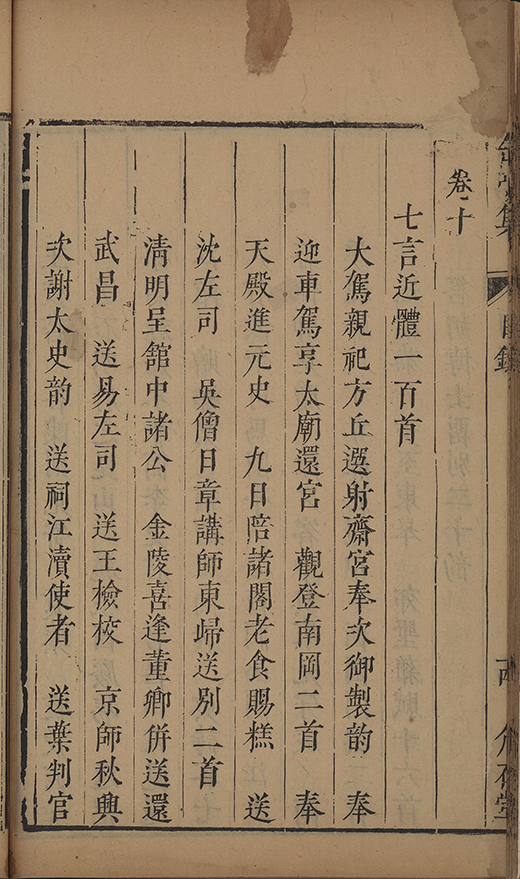 卷十
七言近體一百首
大駕親祀方丘選射齋宮奉次御製韵　奉
迎車駕享太廟還宮　觀登南岡二首　奉
天殿進元史　九日陪諸閣老食賜糕　送
沈左司　吳僧日章講師東歸送別二首
清明呈館中諸公　金陵喜逢董卿併送還
武昌　送易左司　送王檢校　京師秋興
次謝太史韵　送祠江瀆使者　送葉判官
集　目錄